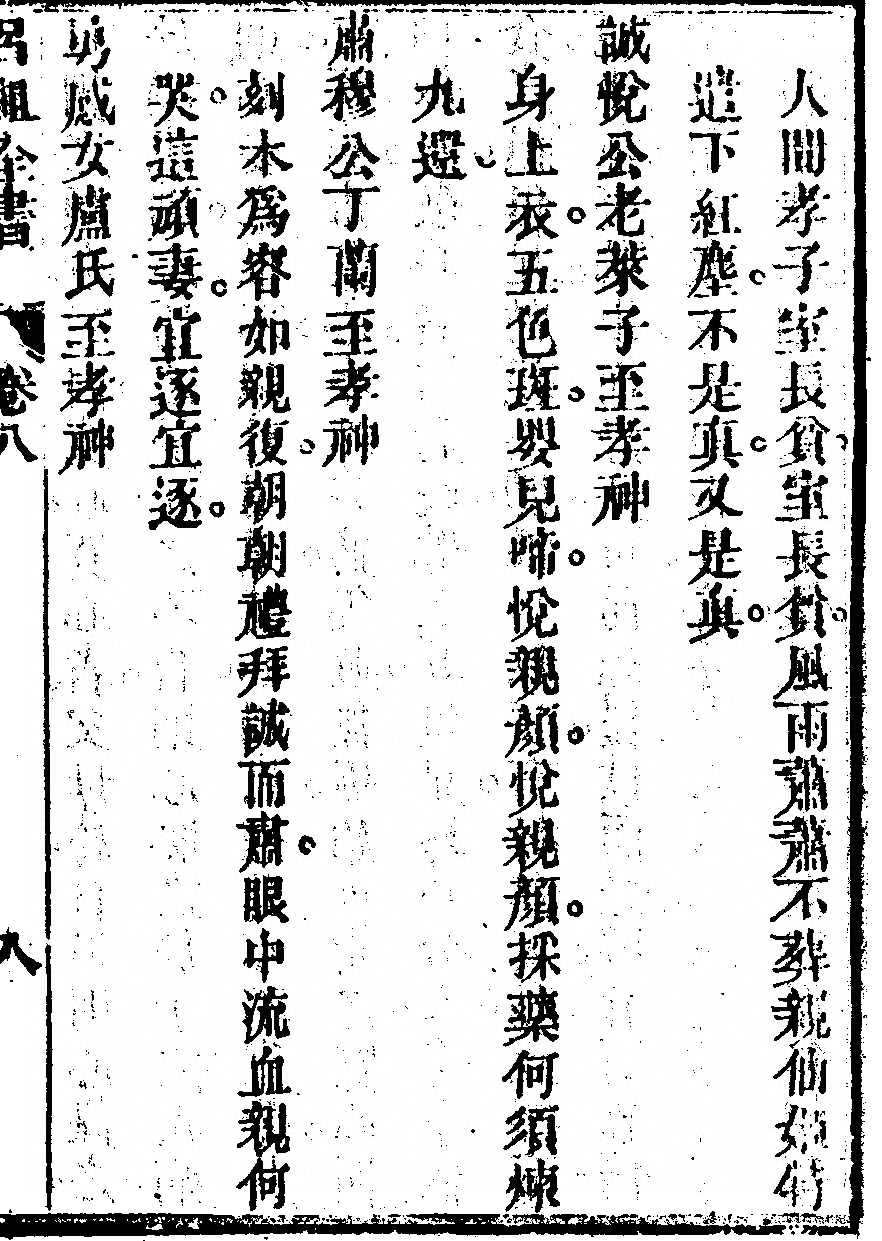 人間孝子室長貧室長貧風雨蕭蕭不葬親仙姬特
遣下紅塵不是真又是真
誠悅公老萊子至孝神
身上衣五色斑嬰兒啼悅親顏悅親顏採藥何須煉
九還
肅穆公丁蘭至孝神
刻木為容如親復朝朝禮拜誠而肅眼中流血親何
哭這頑妻宜逐宜逐
勇感女盧氏至孝神
呂祖全書 卷八 八